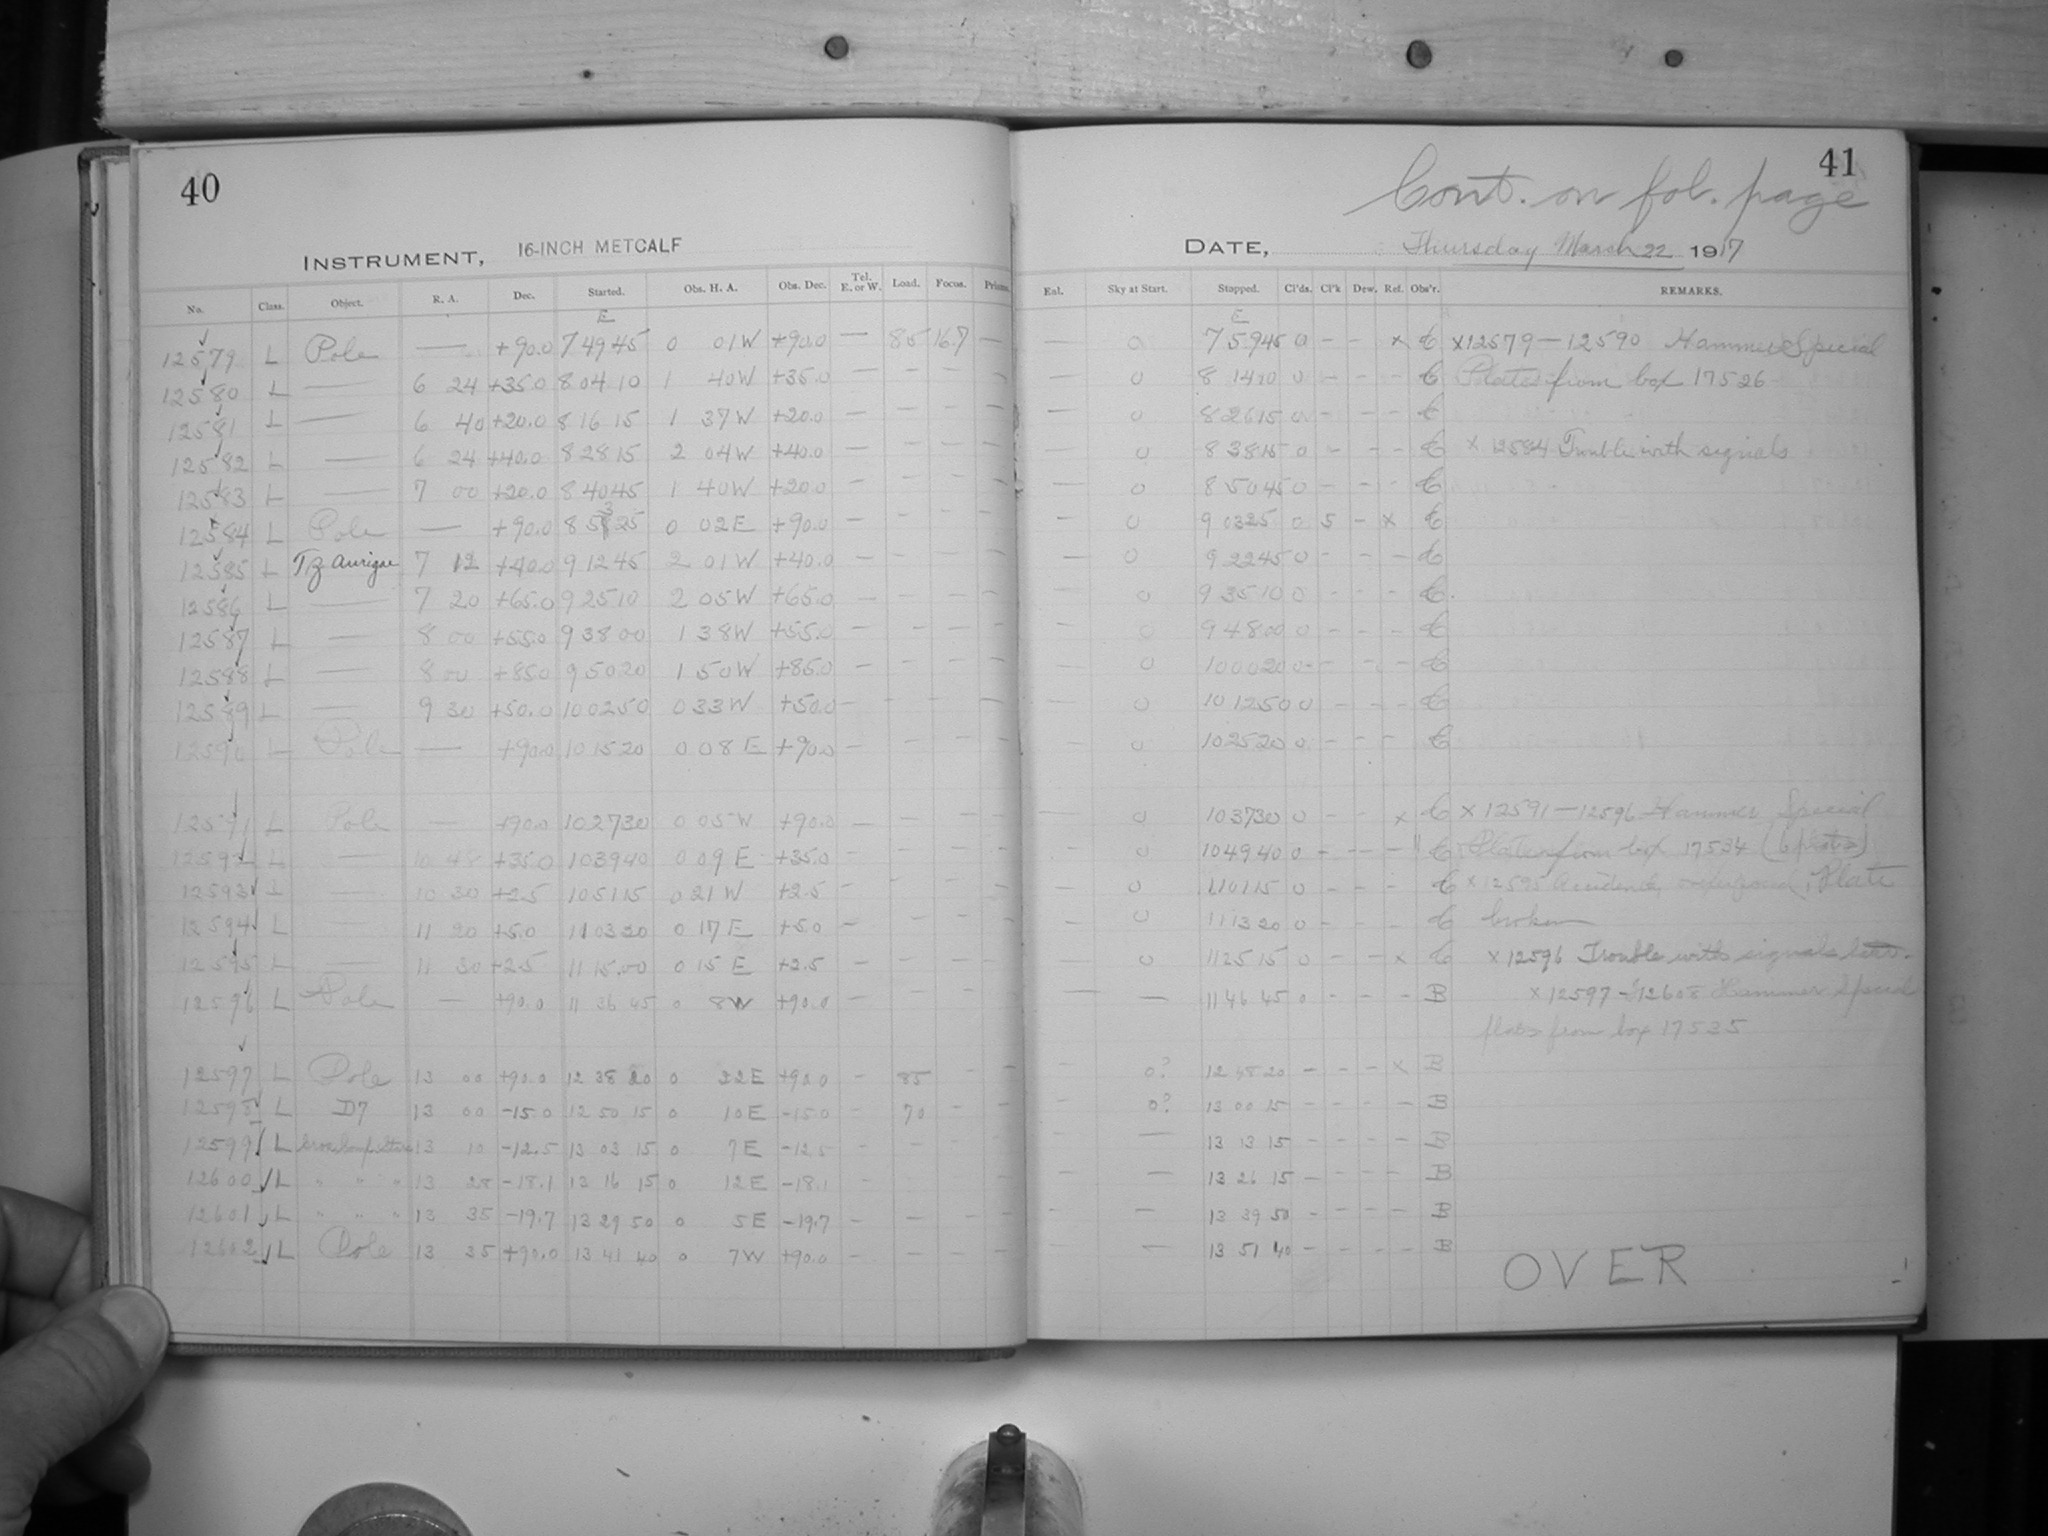 40
INSTRUMENT, 16-INCH METCALF
No. Class. Object. R. A. Dec. Started. Obs. H. A. Obs. Dec. Tel. E. or W. Load. Focus. Prisms.
E
12579 L Pole — +90.0 7 49 45 0 01 W +90.0 — 85 16.7 —
12580 L — 6 24 +35.0 8 04 10 1 40 W +35.0 — — — —
12581 L — 6 40 +20.0 8 16 15 1 37 W +20.0 — — — —
12582 L — 6 24 +40.0 8 28 15 2 04 W +40.0 — — — —
12583 L — 7 00 +20.0 8 40 45 1 40 W +20.0 — — — —
12584 L Pole — +90.0 8 53 25 0 02 E +90.0 — — — —
12585 L TZ Aurigae 7 12 +40.0 9 12 45 2 01 W +40.0 — — — —
12586 L — 7 20 +65.0 9 25 10 2 05 W +65.0 — — — —
12587 L — 8 00 +55.0 9 38 00 1 38 W +55.0 — — — —
12588 L — 8 00 +85.0 9 50 20 1 50 W +85.0 — — — —
12589 L — 9 30 +50.0 10 02 50 0 33 W +50.0 — — — —
12590 L Pole — +90.0 10 15 20 0 08 E +90.0 — — — —
12591 L Pole — +90.0 10 27 30 0 05 W +90.0 — — — —
12592 L — 10 48 +35.0 10 39 40 0 09 E +35.0 — — — —
12593 L — 10 30 +2.5 10 51 15 0 21 W +2.5 — — — —
12594 L — 11 20 +5.0 11 03 20 0 17 E +5.0 — — — —
12595 L — 11 30 +2.5 11 15 00 0 15 E +2.5 — — — —
12596 L Pole — +90.0 11 36 45 0 8 W +90.0 — — — —
12597 L Pole 13 00 +90.0 12 38 20 0 22 E +90.0 — 85 — —
12598 L D7 13 00 -15.0 12 50 15 0 10 E -15.0 — 70 — —
12599 L 13 10 -12.5 13 03 15 0 7 E -12.5 — — — —
12600 L " " " 13 28 -18.1 13 16 15 0 12 E -18.1 — — — —
12601 L " " " 13 35 -19.7 13 29 50 0 5 E -19.7 — — — —
12602 L Pole 13 35 +90.0 13 41 40 0 7 W +90.0 — — — —
41
Cont. on fol. page
DATE, Thursday March 22 1917
Enl. Sky at Start. Stopped. Cl'ds. Cl'k Dew. Ref. Obs'r. REMARKS.
E
— 0 7 59 45 0 - - x C x12579—12590 Hammer Special
— 0 8 14 10 0 - - - C Plates from box 17526
— 0 8 26 15 0 - - - C
— 0 8 38 15 0 - - - C x 12584 Trouble with signals
— 0 8 50 45 0 - - - C
— 0 9 03 25 0 5 - x C
— 0 9 22 45 0 - - - C
— 0 9 35 10 0 - - - C
— 0 9 48 00 0 - - - C
— 0 10 00 20 0 - - - C
— 0 10 12 50 0 - - - C
— 0 10 25 20 0 - - - C
— 0 10 37 30 0 - - x C x 12591—12596 Hammer Special
— 0 10 49 40 0 - - - " C Plates from box 17534 (6 plates)
— 0 11 01 15 0 - - - C x 12595 Plate
— 0 11 13 20 0 - - - C broken
— 0 11 25 15 0 - - x C x 12596 Trouble with signals
— — 11 46 45 0 - - - B x 12597 - Hammer Special
plates from box 17535
— 0? 12 48 20 - - - x B
— 0? 13 00 15 - - - - B
— — 13 13 15 - - - - B
— — 13 26 15 - - - - B
— — 13 39 50 - - - - B
— 13 51 40 - - - - B
OVER